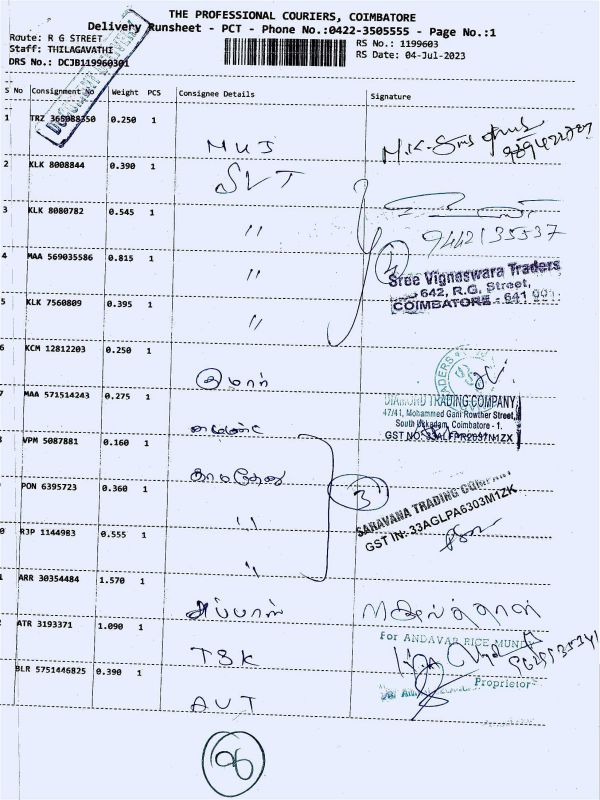 THE PROFESSIONAL COURIERS, COIMBATORE
Delivery Runsheet - PCT - Phone No.:0422-3505555 - Page No.:1
Route: R G STREET
RS No.: 1199603
Staff: THILAGAVATHI
RS Date: 04-Jul-2023
DRS No.: DCJB119960301
S No Consignment No Weight PCS Consignee Details Signature
1 TRZ 365088350 0.250 1
MKJ
9894422787
2 KLK 8008844 0.390 1
SVT
3 KLK 8080782 0.545 1
"
9442135537
4 MAA 569035586 0.815 1
"
4
Sree Vignaswara Traders
642, R.G. Street,
COIMBATORE - 641 001
5 KLK 7560809 0.395 1
"
6 KCM 12812203 0.250 1
குமார்
7 MAA 571514243 0.275 1
DIAMOND TRADING COMPANY
47/41, Mohammed Gani Rowther Street,
South Ukkadam, Coimbatore - 1.
8 VPM 5087881 0.160 1
காமதேனு
PON 6395723 0.360 1
"
3
SARAVANA TRADING COMPANY
GST IN:-33AGLPA6303M1ZK
0 RJP 1144983 0.555 1
"
1 ARR 30354484 1.570 1
அப்பாஸ்
ATR 3193371 1.090 1
TSK
For ANDAVAR RICE MUNDY
Proprietor
BLR 5751446825 0.390 1
AVT